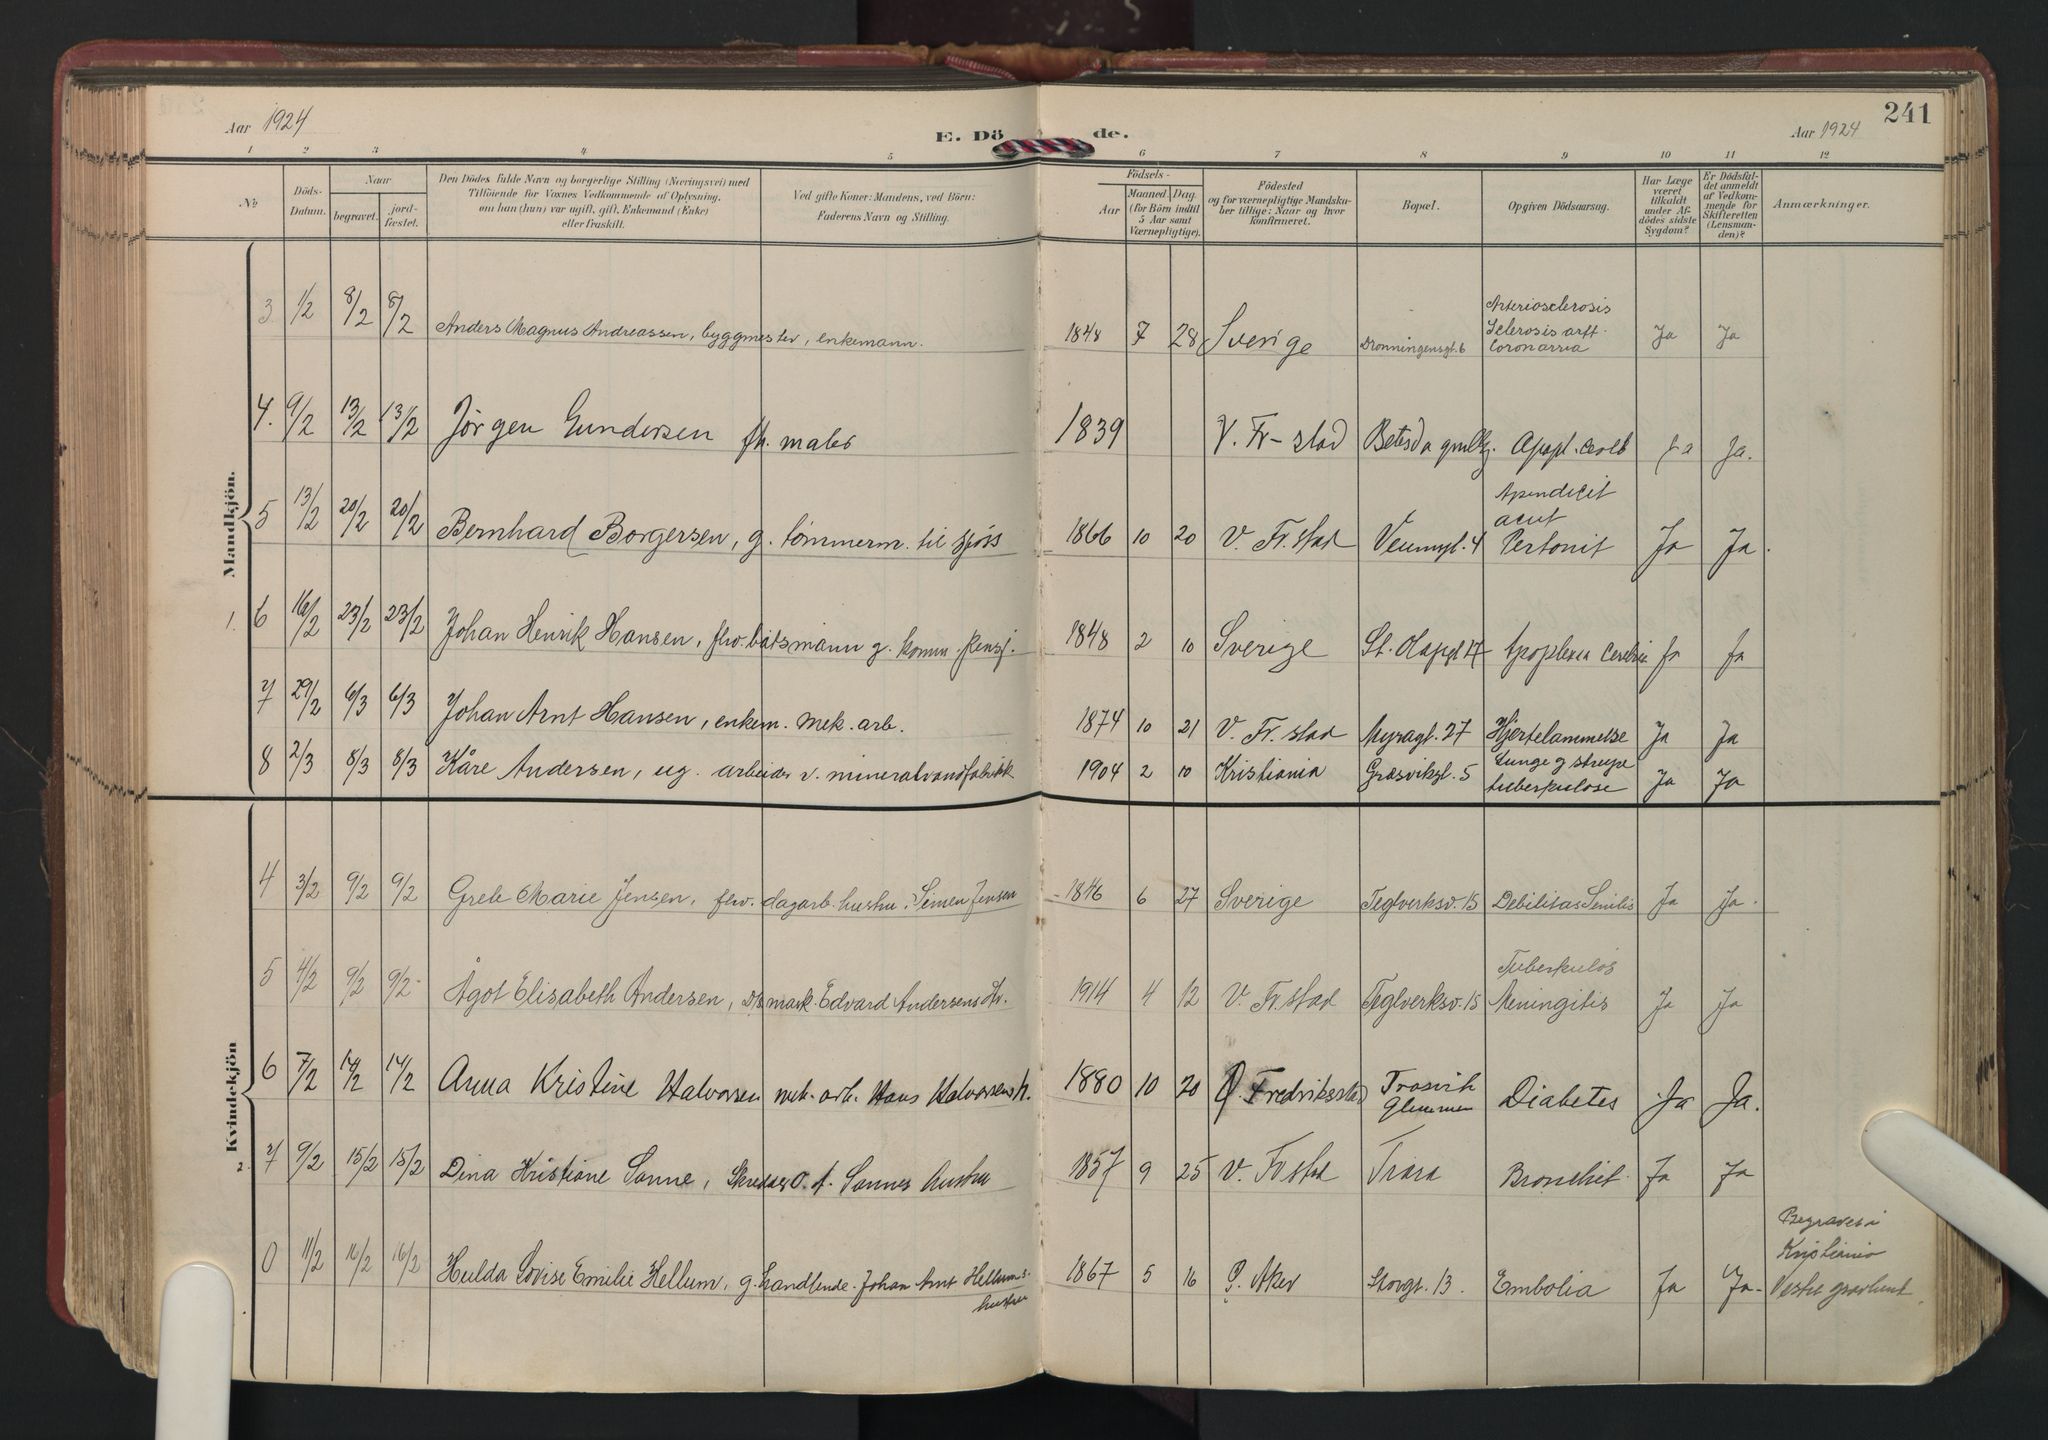 Aar 1924
E. Döde.
Aar 1924
241
1 2 3 4 5 6 7 8 9 10 11 12
No
Döds-Datum.
Naar
begravet.
jordfæstet.
Den Dödes fulde Navn og borgerlige Stilling (Næringsvei) med
Tilföiende for Voxnes Vedkommende af Oplysning,
om han (hun) var ugift, gift, Enkemand (Enke)
eller fraskilt.
Ved gifte Koner: Mandens, ved Börn:
Faderens Navn og Stilling.
Födsels-
Aar
Maaned.
Dag.
(for Börn indtil
5 Aar samt
Værnepligtige).
Födested
og for værnepligtige Mandskaber tillige: Naar og hvor
konfirmeret.
Bopæl.
Opgiven Dödsaarsag.
Har Læge
været
tilkaldt
under Afdödes sidste
Sygdom?
Er Dödsfaldet anmeldt
af Vedkommende for
Skifteretten
(Lensmanden)?
Anmærkninger.
Mandkjön.
3 1/2 8/2 8/2 Anders Magnus Andreassen, byggmester, enkemann. 1848 7 28 Sverige Dronningensgt. 6 Arteriosclerosis Sclerosis artt. Coronarria Ja Ja
4. 9/2 13/2 13/2 Jørgen Gundersen fh. maler 1839 V. Fr-stad Betesda Apopl. cereb Ja Ja.
5 13/2 20/2 20/2 Bernhard Borgersen, g. tömmerm. til sjøs 1866 10 20 V. Fr.stad Veumgt. 4 Apendicit acut Pertonit Ja Ja.
1. 6 16/2 23/2 23/2 Johan Henrik Hansen, fhv. båtsmann g. komm. pensj. 1848 2 10 Sverige St. Olapgt 17 Apoplexia Cerebri Ja Ja
7 29/2 6/3 6/3 Johan Arnt Hansen, enkem. mek. arb. 1874 10 21 V. Fr. stad Myragt. 27 Hjertelammelse Ja Ja
8 2/3 8/3 8/3 Kåre Andersen, ug. arbeider v. mineralvandfabrikk 1904 2 10 Kristiania Græsvikgt. 5 Lunge g strupe tuberkulose Ja Ja
Kvindekjön
4 3/2 9/2 9/2 Grete Marie Jensen, fhv. dagarb. hustru. Simen Jensen 1846 6 27 Sverige Teglverksv. 15 Debilitas Senilis Ja Ja.
5 4/2 9/2 9/2 Ågot Elisabeth Andersen, mask. Edvard Andersens dtr. 1914 4 12 V. Fr.stad Teglverksv. 15 Tuberkuløs Meningitis Ja Ja
6 7/2 14/2 14/2 Anna Kristine Halvorsen mek. arb. Hans Halvorsens h. 1880 10 20 Ø. Fredriksstad Trosvik Glemmen Diabetes Ja Ja.
2. 7 9/2 15/2 15/2 Dina Kristiane Sanne, Skredder O. A. Sannes hustru 1857 9 25 V. Frstad Trara Bronchit. Ja Ja
11/2 16/2 16/2 Hulda Lovise Emilie Hellum, g. handlende. Johan Arnt Hellums hustru 1867 5 16 Ø. Aker Storgt. 13. Embolia Ja Ja- Begraves i Kristiania Vestre gravlund.